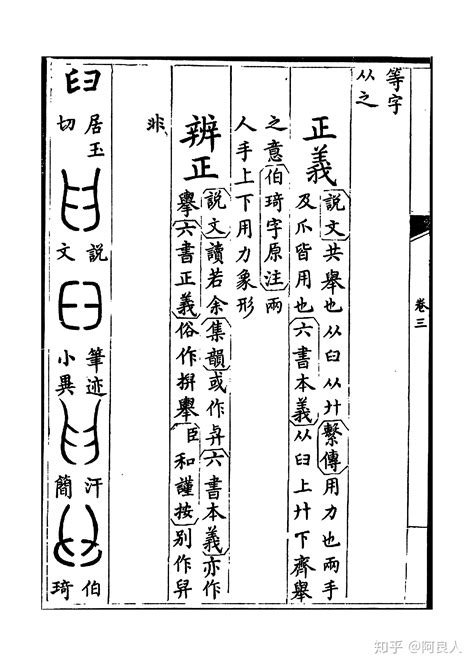 等字
从之
卷三
正義
說文共舉也从臼从廾繫傳用力也兩手
及爪皆用也六書本義从臼上廾下齊舉
之意伯琦字原注兩
人手上下用力象形
辨正
說文讀若余集韻或作六書本義亦作
擧六書正義俗作舉臣和謹按別作
非
𦥑
居玉
切
說
文
筆迹
小異
汗
簡
伯
琦
知乎 @阿良人